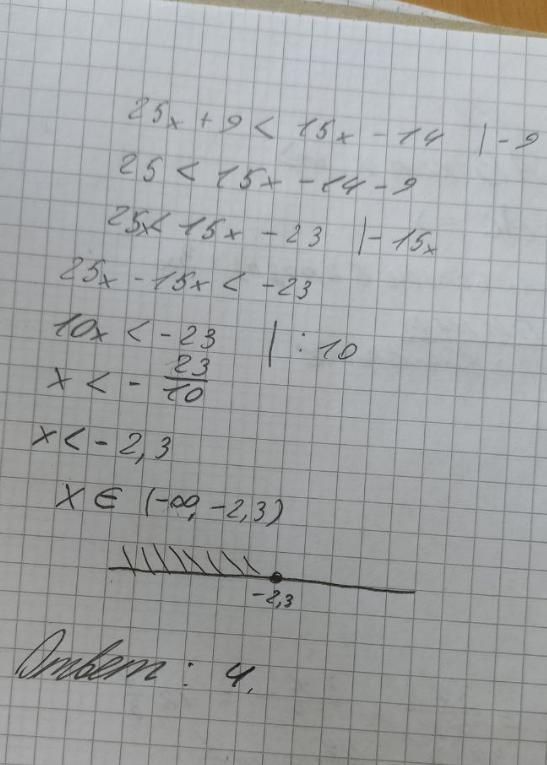 25x + 9 < 15x - 14 | - 9
25 < 15x - 14 - 9
25x < 15x - 23 | - 15x
25x - 15x < - 23
10x < - 23 | : 10
x < - 23/10
x < - 2,3
x ∈ (-∞, -2,3)
-2,3
Ответ : 4.